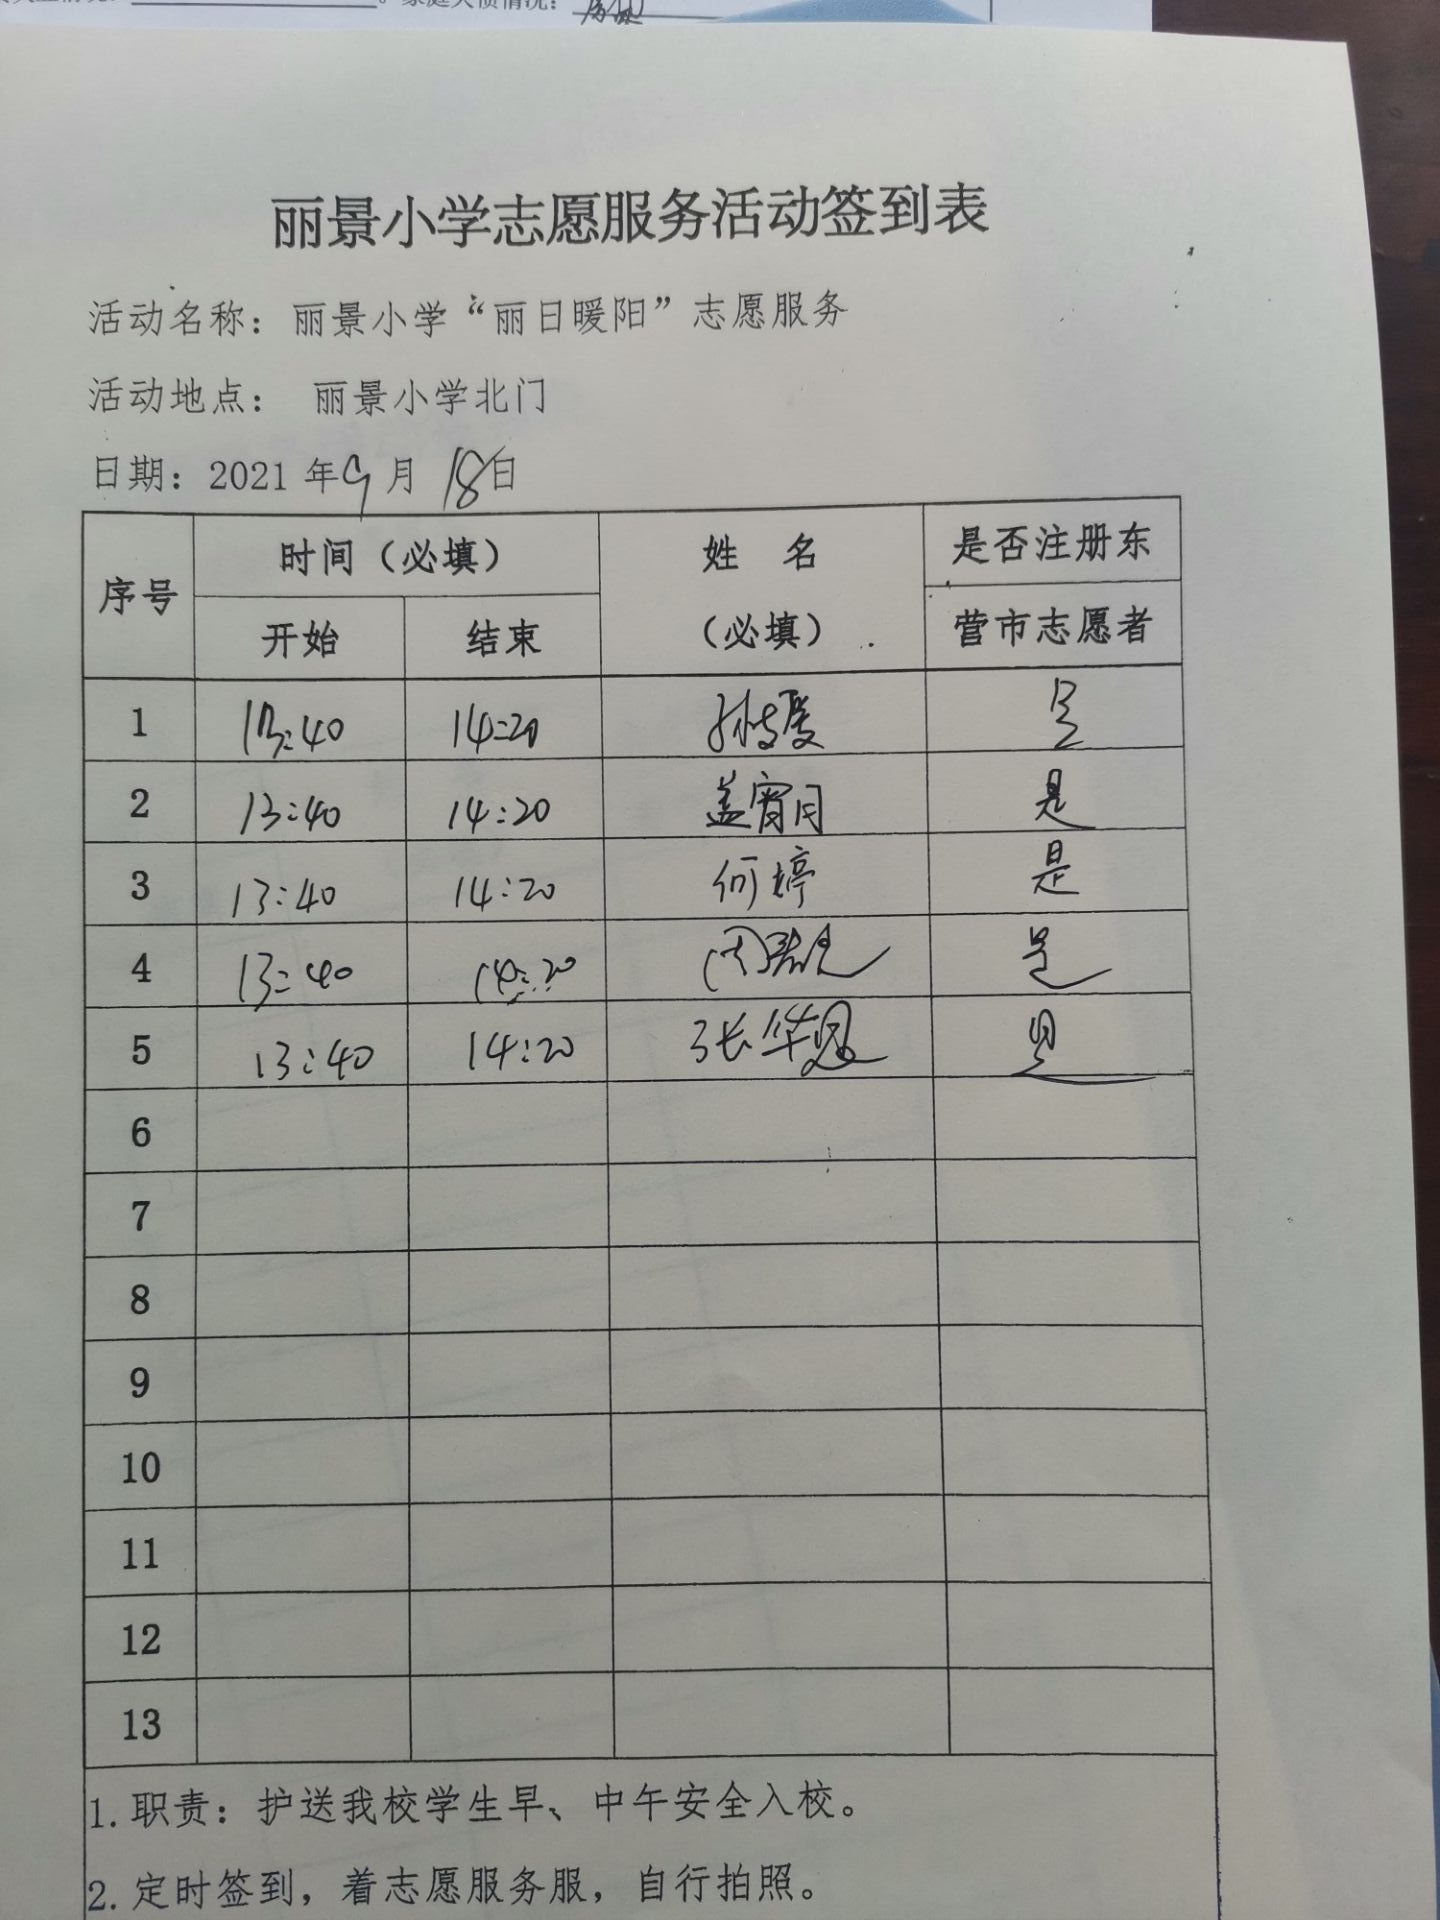 家庭欠债情况：
丽景小学志愿服务活动签到表
活动名称：丽景小学“丽日暖阳”志愿服务
活动地点： 丽景小学北门
日期：2021年9月18日
序号 时间（必填） 姓 名 是否注册东
开始 结束 （必填） 营市志愿者
1 13:40 14:20 是
2 13:40 14:20 盖宵月 是
3 13:40 14:20 何婷 是
4 13:40 14:20 周 是
5 13:40 14:20 张华 是
6
7
8
9
10
11
12
13
1. 职责：护送我校学生早、中午安全入校。
2. 定时签到，着志愿服务服，自行拍照。